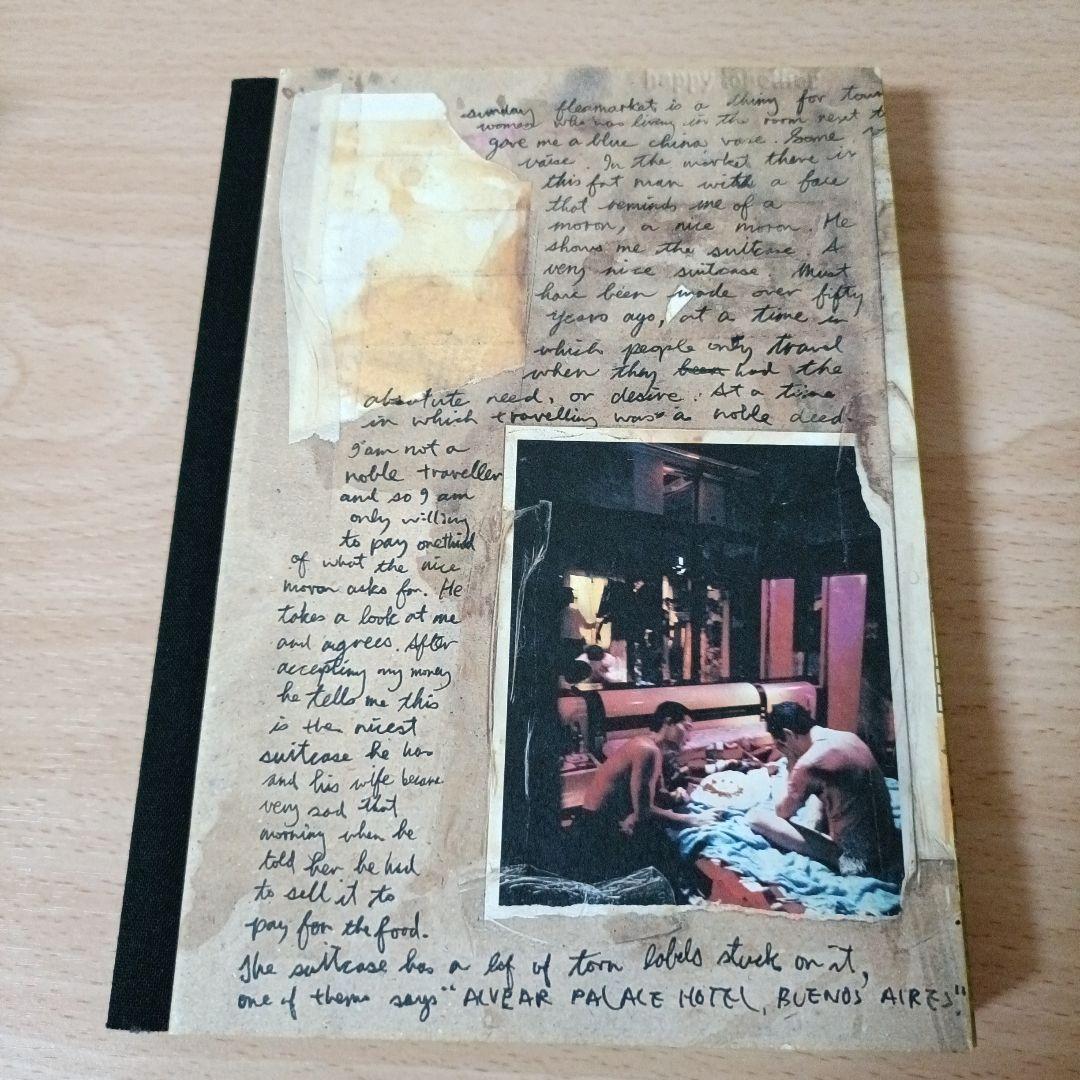 happy together
sunday fleamarket is a thing for tour
woman who was living in the room next t
gave me a blue china vase. Some
vaise. In the market there is
this fat man with a face
that reminds me of a
moron, a nice moron. He
shows me the suitcase A
very nice suitcase. Must
have been made over fifty
years ago, at a time in
which people only travel
when they been had the
absolute need, or desire. At a time
in which travelling was a noble deed
I am not a
noble traveller
and so I am
only willing
to pay onethird
of what the nice
moron asks for. He
takes a look at me
and agrees. After
accepting my money
he tells me this
is the nicest
suitcase he has
and his wife became
very sad that
morning when he
told her he had
to sell it to
pay for the food.
The suitcase has a lot of torn labels stuck on it,
one of thems says "ALVEAR PALACE HOTEL, BUENOS AIRES".